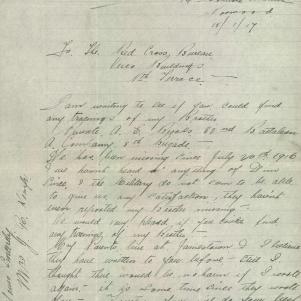 Norwood
18/1/17
To The Red Cross Bureau
Buildings
Nth Terrace
I am writing to see if you could find
any tracings of my Brother
Private A. E. 32nd Battalion
A Company 8th Brigade
He has been missing since July 20th 1916
& we havn't heard anything of Him
since, & the Military do not seem to be able
to give us any satisfaction, they havn't
even reported my Brother missing
We would be very pleased if you could find
any tracings of my Brother
My Parents live at Jamestown & I believe
they have written to you before and I
thought there would be no harm if I wrote
again. it is some time since they wrote
Yours Sincerely
Mrs J. H.